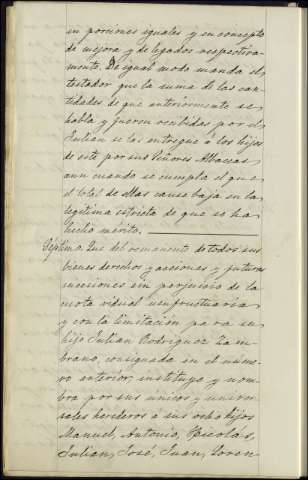 en porciones iguales y en concepto
de mejora y de legados respectiva-
mente. De igual modo manda el
testador que la suma de las can-
tidades de que anteriormente se
habla y fueren recibidas por el
Julian se les entregue á los hijos
de este por sus Señores Albaceas
aun cuando se cumpla el que
el total de ellas cause baja en la
legítima estricta de que se ha
hecho mérito.
Séptimo. Que del remanente de todos sus
bienes derechos y acciones y futuras
sucesiones sin perjuicio de la
cuota vidual usufructuaria
y con la limitación para su
hijo Julian Rodriguez Zam-
brano, consignada en el núme-
ro anterior, instituye y nom-
bra por sus unicos y univer-
sales herederos á sus ocho hijos
Manuel, Antonio, Nicolás,
Julian, José, Juan, Loren-